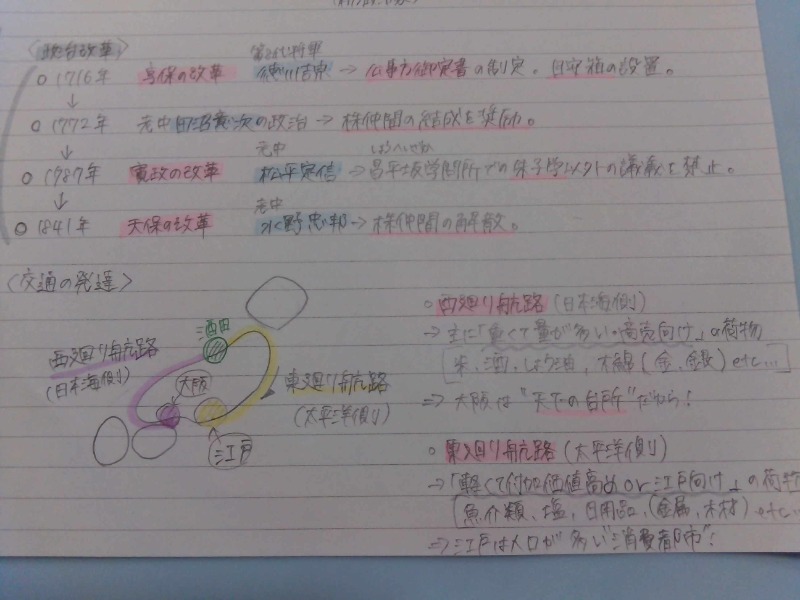 1716年 享保の改革 徳川吉宗 → 公事方御定書の制定。目安箱の設置。
↓
1772年 老中田沼意次の政治 → 株仲間の結成を奨励。
↓
老中
1987年 寛政の改革 松平定信 → 昌平坂学問所での朱子学以外の講義を禁止。
↓
老中
1841年 天保の改革 水野忠邦 → 株仲間の解散。
〈交通の発達〉
西廻り航路
(日本海側)
大阪
東廻り航路
(太平洋側)
江戸
○西廻り航路(日本海側)
→主に「重くて量が多い・商売向け」の荷物
[米、酒、しょう油、大銀(金、銀)etc…
⇒大阪は"天下の台所"だから!
○東廻り航路(太平洋側)
→「軽くて付加価値高め or 江戸向け」の荷物
[魚介類、塩、日用品、(金属、木材)etc…
⇒江戸は人口が多い"消費都市"!